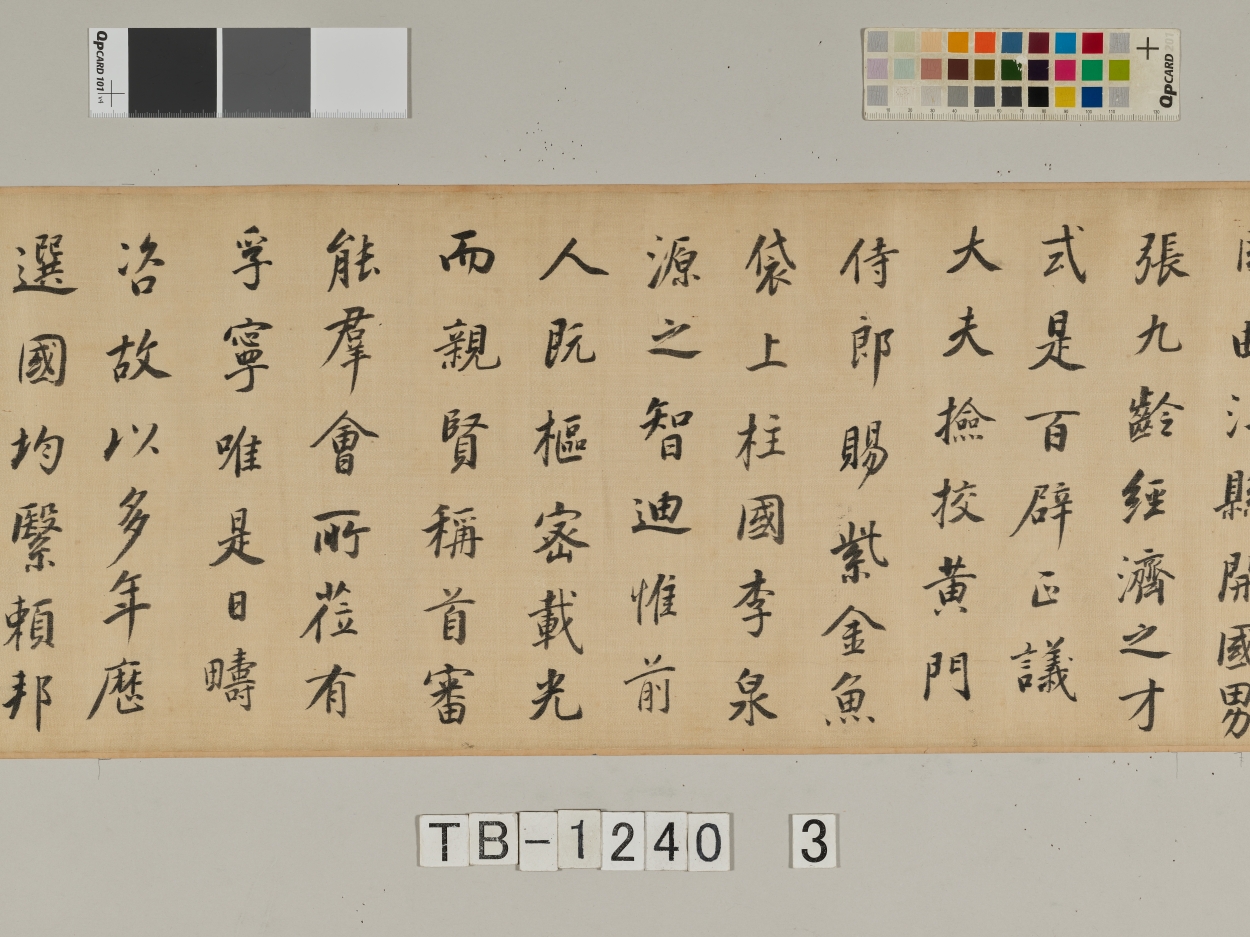 QPCARD 101 v4
QPCARD 201
縣開國男
張九齡經濟之才
式是百辟正議
大夫撿挍黃門
侍郎賜紫金魚
袋上柱國李泉
源之智迪惟前
人既樞密載光
而親賢稱首審
能羣會所莅有
孚寧唯是日疇
咨故以多年歷
選國均繄賴邦
TB-1240 3